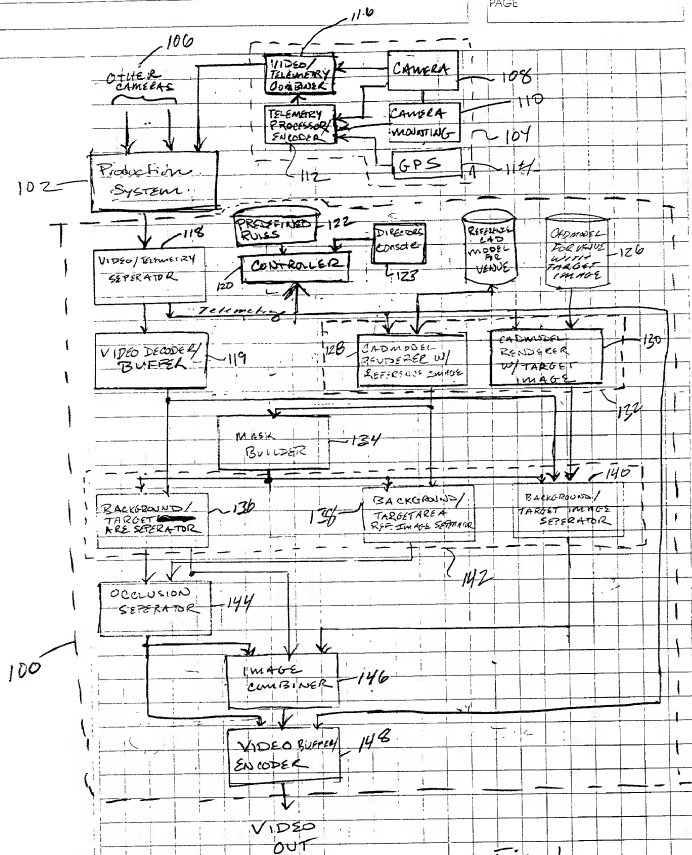 PAGE
116
106
OTHER
CAMERAS
VIDEO/
TELEMETRY
COMBINER
CAMERA
108
TELEMETRY
PROCESSOR/
ENCODER
CAMERA
MOUNTING
110
104
112
GPS
114
102
Production
System
118
PREDEFINED
RULES
122
DIRECTORS
CONSOLE
REFERENCE
CAD
MODEL
FOR
VENUE
CADMODEL
FOR VENUE
WITH
TARGET
IMAGE
126
VIDEO/TELEMETRY
SEPERATOR
120
CONTROLLER
123
Telemetry
VIDEO DECODER/
BUFFER
119
128
CADMODEL
RENDERER W/
REFERENCE IMAGE
CADMODEL
RENDERER
W/TARGET
IMAGE
130
132
MASK
BUILDER
134
140
BACKGROUND/
TARGET
ARE SEPERATOR
136
138
BACKGROUND/
TARGET AREA
REF. IMAGE SEPERATOR
BACKGROUND/
TARGET IMAGE
SEPERATOR
142
OCCLUSION
SEPERATOR
144
100
IMAGE
COMBINER
146
VIDEO BUFFER/
ENCODER
148
VIDEO
OUT